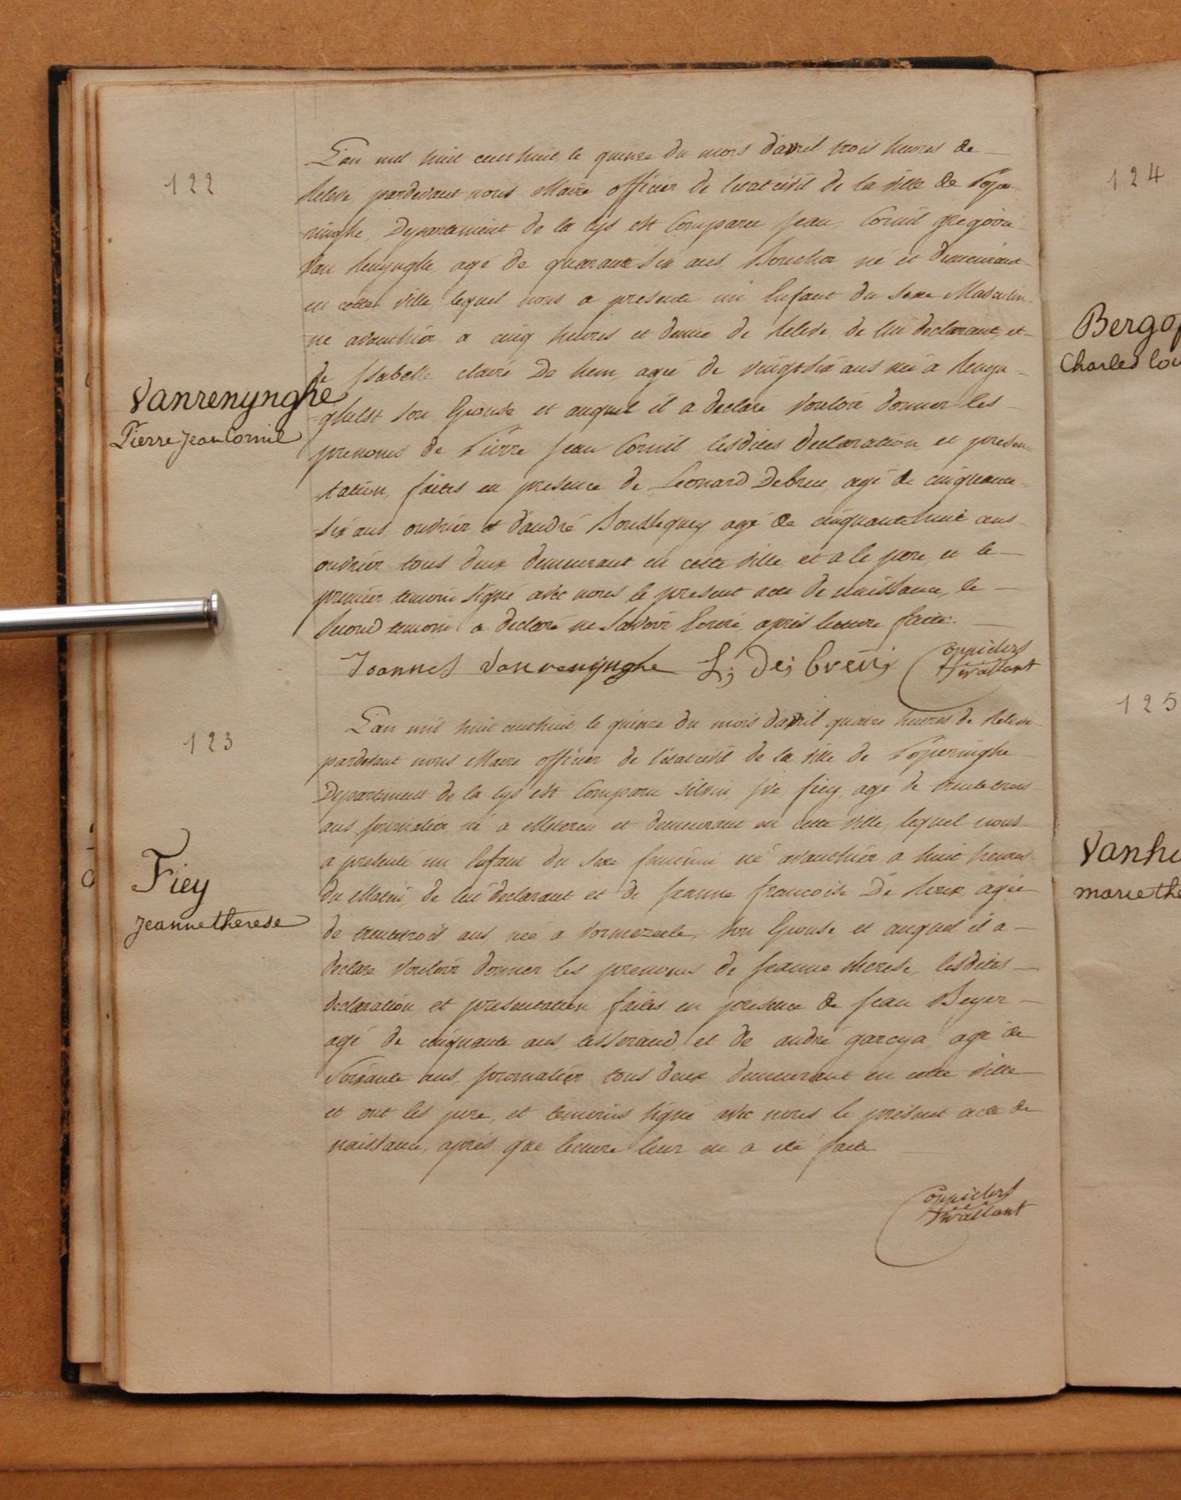 122
L'an mil huit cent huit le quinze du mois d'avril trois heures de
relevé pardevant nous Maire officier de l'etat civil de la ville de Pope
ringhe, Departement de la Lys est Comparu Jean Cornil gregoire
Van Renynghe agé de quarante six ans Boucher né et demeurant
en cette ville lequel nous a presenté un Enfant du Sexe Masculin
né avanthier a cinq heures et demie de relevée de lui declarant, et
de Isabelle claire De hem, agée de vingt six ans née à Renin
Vanrenynghe
Pierre Jean Cornil
ghelst son Epouse et auquel il a declaré vouloir donner les
prenoms de Pierre Jean Cornil lesdites declaration et presen
tation faites en presence de Leonard Debreu agé de cinquante
six ans ouvrier et d'andré agé de cinquante huit ans
ouvrier tous deux demeurant en cette ville et a le pere et le
premier temoin signé avec nous le present acte de naissance, le
second temoin a declaré ne savoir Ecrire après lecture faite.
Joannes Vanrenijnghe L; de; breu;
123
L'an mil huit cent huit le quinze du mois d'avril quatre heures de relevé
pardevant nous Maire officier de l'etat civil de la ville de Poperinghe
Departement de la Lys est Comparu Silvin fiey agé de trente trois
ans journalier né a et demeurant en cette ville, lequel nous
a presenté un Enfant du Sexe feminin né avanthier a huit heures
Fiey
Jeanne therese
du Matin de lui declarant et de Jeanne francoise agée
de trente trois ans, née a Vormezeele, son Epouse et auquel il a
declaré vouloir donner les prenoms de Jeanne therese, lesdites
declaration et presentation faites en presence de Jean Beyer
agé de cinquante ans tisserand et de andré garcya agé de
soixante ans journalier tous deux demeurant en cette ville
et ont les pere, et temoins signé avec nous le present acte de
naissance, après que lecture leur en a eté faite
124
Charles
125
marie